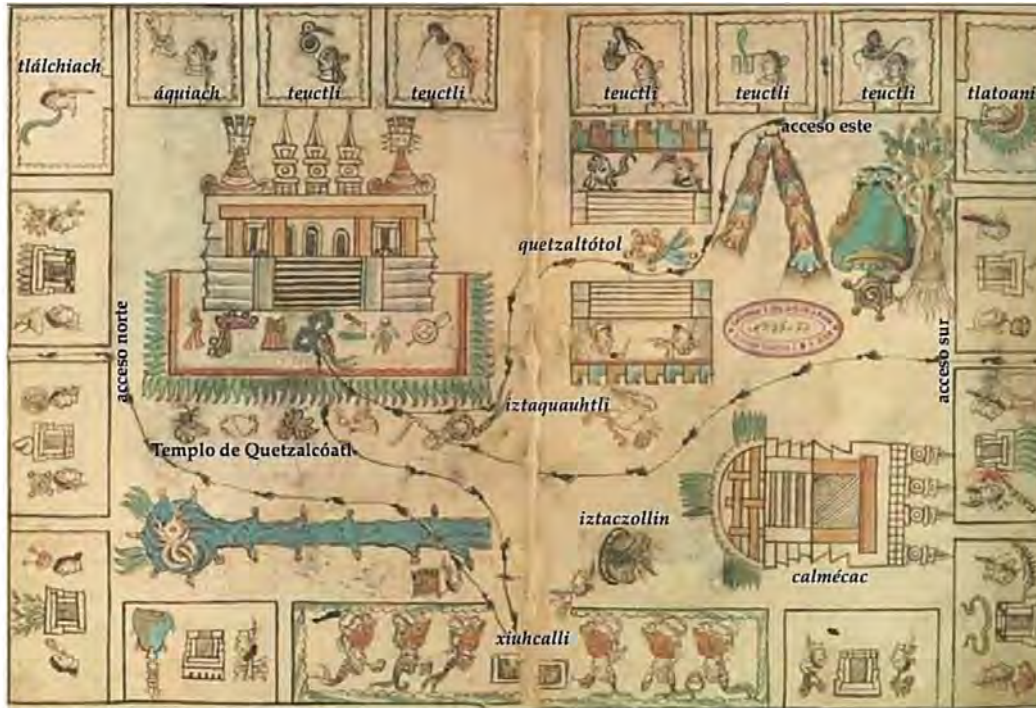 tlálchiach
áquiach
teuctli
teuctli
teuctli
teuctli
teuctli
tlatoani
acceso este
quetzaltótol
acceso norte
acceso sur
iztaquauhtli
Templo de Quetzalcóatl
iztaczollin
calmécac
xiuhcalli